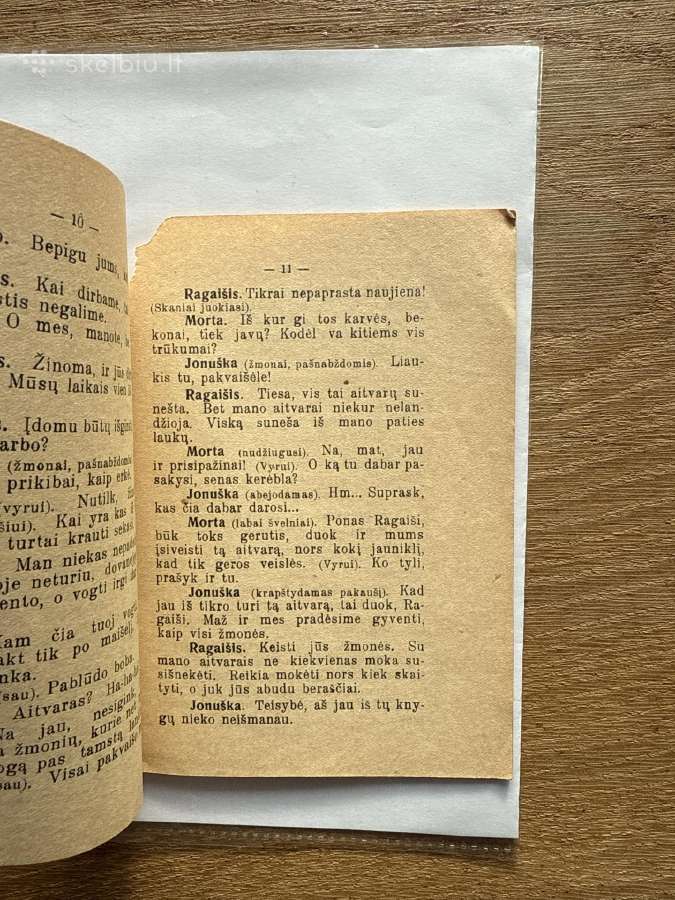 skelbiu.lt
— 10 —
Bepigu jums,
Kai dirbame,
negalime.
O mes, manote,
Žinoma, ir jūs
Mūsų laikais
Įdomu būtų
(žmonai, pašnabždomis)
prikibai, kaip
(vyrui). Nutilk,
Kai yra kas
turtai krauti
Man niekas
neturiu,
o vogti irgi
čia tuoj
tik po maišelį,
Pablūdo boba.
Aitvaras?
jau,
žmonių, kurie
pas tamstą
Visai
— 11 —
Ragaišis. Tikrai nepaprasta naujiena!
(Skaniai juokiasi).
Morta. Iš kur gi tos karvės, be-
konai, tiek javų? Kodėl va kitiems vis
trūkumai?
Jonuška (žmonai, pašnabždomis). Liau-
kis tu, pakvaišėle!
Ragaišis. Tiesa, vis tai aitvarų su-
nešta. Bet mano aitvarai niekur nelan-
džioja. Viską suneša iš mano paties
laukų.
Morta (nudžiugusi). Na, mat, jau
ir prisipažinai! (Vyrui). O ką tu dabar pa-
sakysi, senas kerėbla?
Jonuška (abejodamas). Hm... Suprask,
kas čia dabar darosi...
Morta (labai švelniai). Ponas Ragaiši,
būk toks gerutis, duok ir mums
įsiveisti tą aitvarą, nors kokį jauniklį,
kad tik geros veislės. (Vyrui). Ko tyli,
prašyk ir tu.
Jonuška (krapštydamas pakaušį). Kad
jau iš tikro turi tą aitvarą, tai duok, Ra-
gaiši. Maž ir mes pradėsime gyventi,
kaip visi žmonės.
Ragaišis. Keisti jūs žmonės. Su
mano aitvarais ne kiekvienas moka su-
sišnekėti. Reikia mokėti nors kiek skai-
tyti, o juk jūs abudu beraščiai.
Jonuška. Teisybė, aš jau iš tų kny-
gų nieko neišmanau.